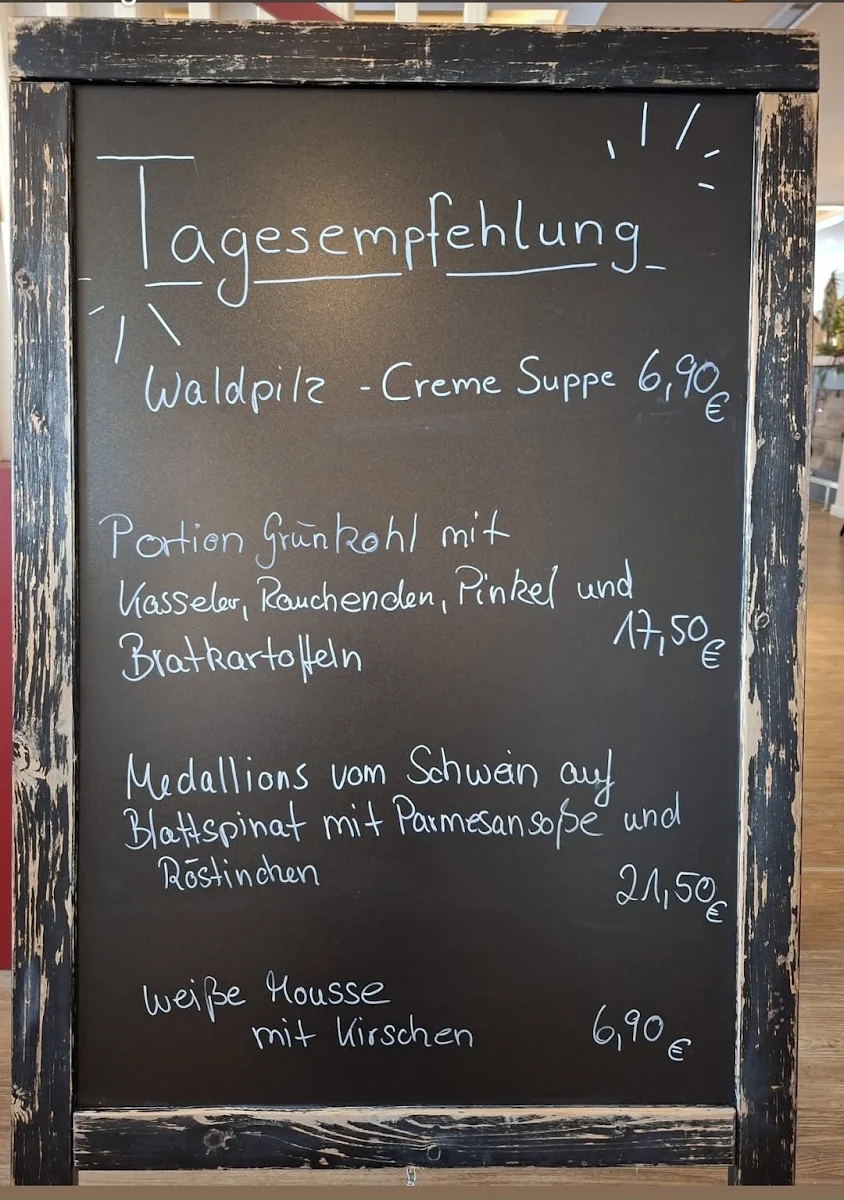 Tagesempfehlung
Waldpilz - Creme Suppe 6,90 €
Portion Grünkohl mit
Kasseler, Rauchenden, Pinkel und
Bratkartoffeln 17,50 €
Medallions vom Schwein auf
Blattspinat mit Parmesansoße und
Röstinchen 21,50 €
weiße Mousse
mit Kirschen 6,90 €